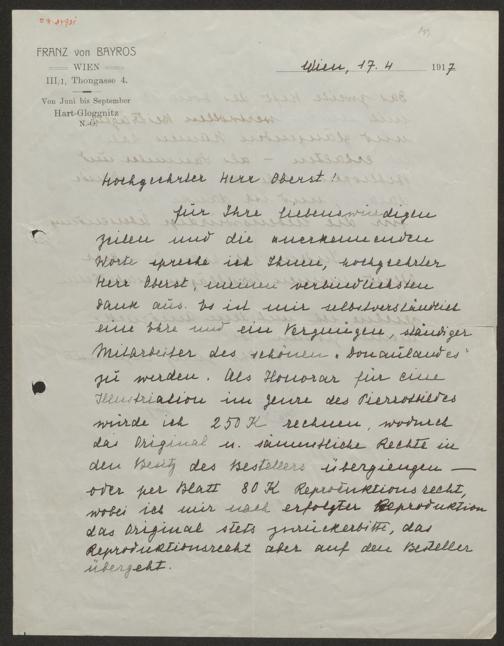 FRANZ von BAYROS
WIEN
III/1, Thongasse 4.
Von Juni bis September
Hart-Gloggnitz
N.-Ö.
Wien, 17. 4 1917
Hochgeehrter Herr Oberst!
für Ihre liebenswürdigen
Zeilen und die anerkennenden
Worte spreche ich Ihnen, hochgeehrter
Herr Oberst, meinen verbindlichsten
Dank aus. Es ist mir selbstverständlich
eine Ehre und ein Vergnügen, ständiger
Mitarbeiter des schönen „Donaulandes"
zu werden. Als Honorar für eine
Illustriation im Genre des Pierrotbildes
würde ich 250 K rechnen, wodurch
das Original u. sämmtliche Rechte in
den Besitz des Bestellers übergiengen —
oder per Blatt 80 K Reproduktionsrecht,
wobei ich mir nach erfolgter Reproduktion
das Original stets zurückerbitte, das
Reproduktionsrecht aber auf den Besteller
übergeht.